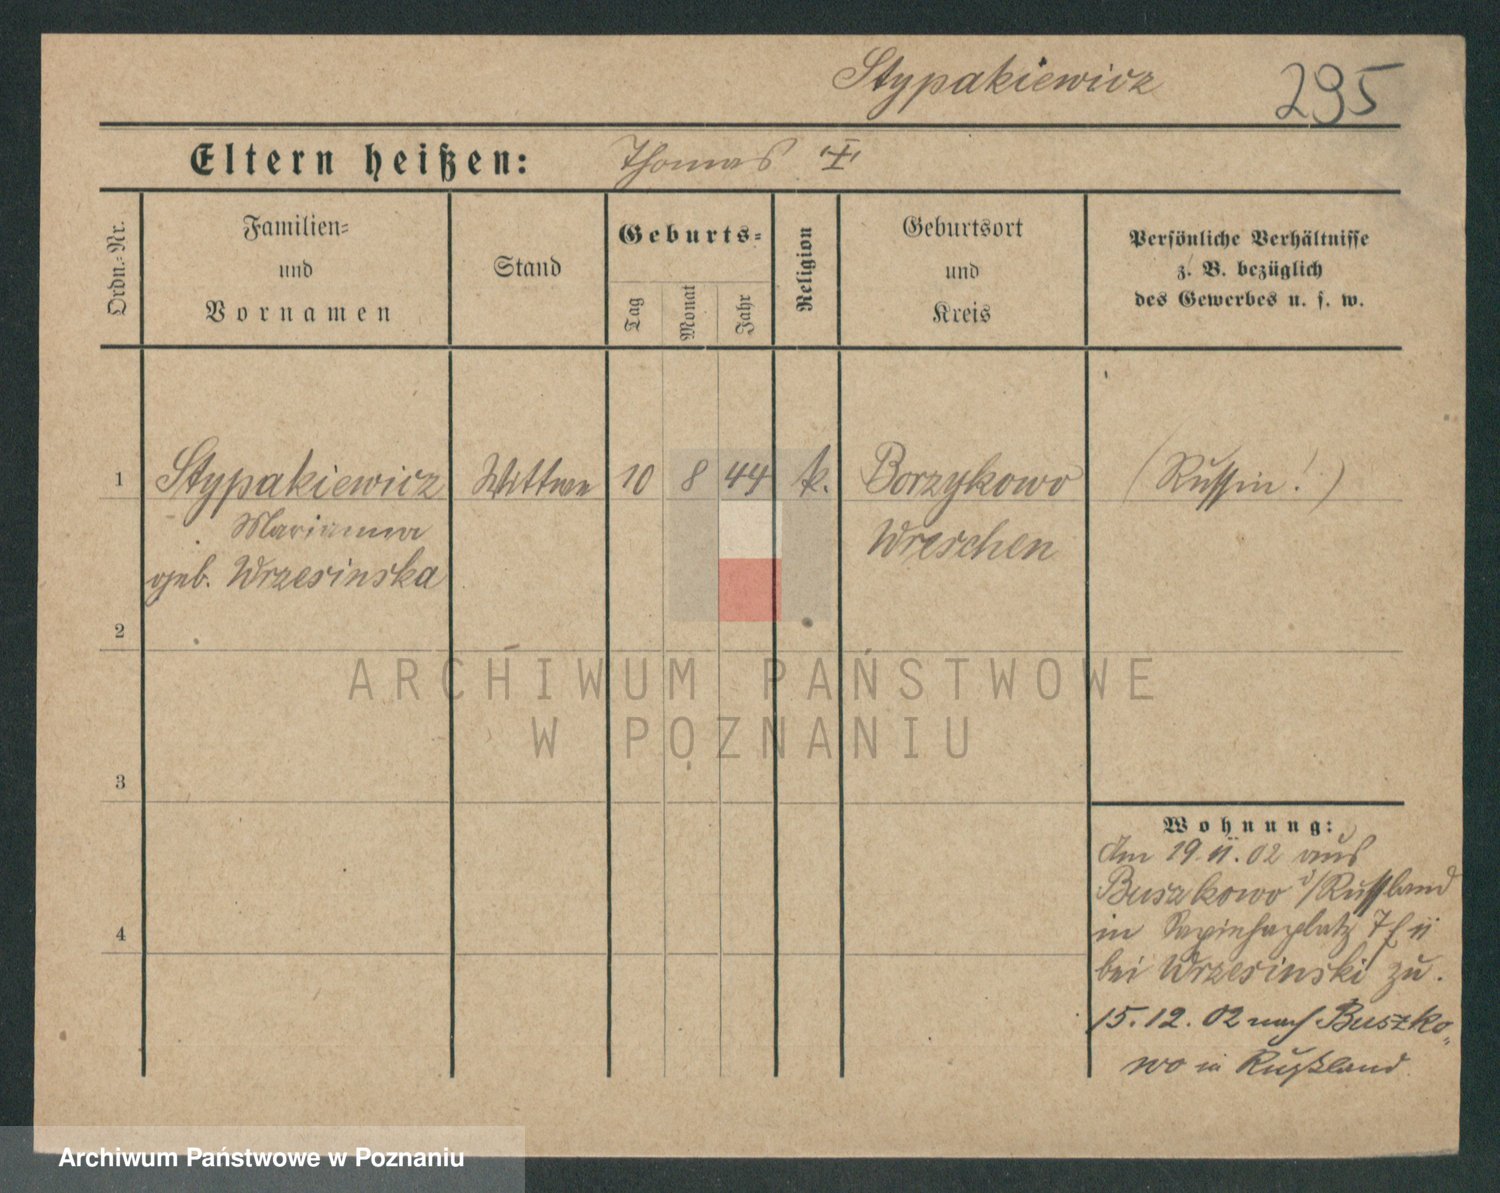 Stypakiewicz 295
Eltern heißen: Thomas
Ordn.-Nr.
Familien-
und
Vornamen
Stand
Geburts-
Tag
Monat
Jahr
Religion
Geburtsort
und
Kreis
Persönliche Verhältnisse
z. B. bezüglich
des Gewerbes u. s. w.
1 Stypakiewicz Wittwe 10 8 44 k. Borzykowo (Russin!)
Marianna Wreschen
geb. Wrzesinska
2
ARCHIWUM PAŃSTWOWE
W POZNANIU
3
Wohnung:
Am 19.11.02 aus
Buszkowo i/Russland
in Sapiehaplatz 7
bei Wrzesinski zu.
4
15.12.02 nach Buszko-
wo in Rußland
Archiwum Państwowe w Poznaniu